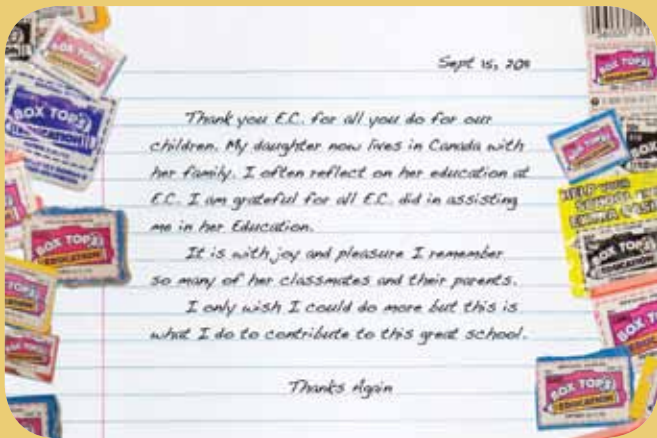 Sept 15, 201
Thank you E.C. for all you do for our
children. My daughter now lives in Canada with
her family. I often reflect on her education at
E.C. I am grateful for all E.C. did in assisting
me in her Education.
It is with joy and pleasure I remember
so many of her classmates and their parents.
I only wish I could do more but this is
what I do to contribute to this great school.
Thanks Again
BOX TOPS
EDUCATION
BOX TOPS
EDUCATION
BOX TOPS
EDUCATION
BOX TOPS
EDUCATION
HELP YOUR
BOX TOPS
EDUCATION
BOX TOPS
EDUCATION